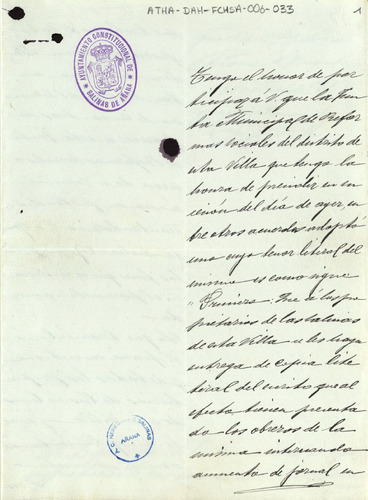 ATHA-DAH-FCHSA-006-033
1
AYUNTAMIENTO CONSTITUCIONAL DE
SALINAS DE AÑANA
Tengo el honor de par
ticipar a V. que la Jun
ta Municipal de Refor
mas sociales del distrito de
esta Villa que tengo la
honra de presidir en se
sión del día de ayer, en
tre otros acuerdos adoptó
uno cuyo tenor literal del
mismo es como sigue
"Primero: Que á los pro
pietarios de las salinas
de esta Villa se les haga
entrega de copia lite
ral del escrito que al
efecto tienen presenta
do los obreros de la
misma interesando
aumento de jornal en
SALINAS
AÑANA